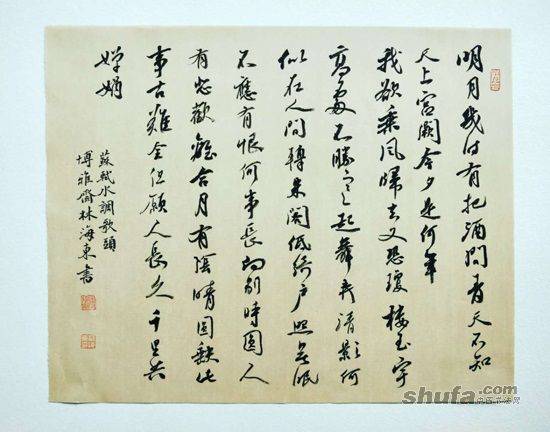 明月幾時有把酒問青天不知
天上宮闕今夕是何年
我欲乘風歸去又恐瓊樓玉宇
高處不勝寒起舞弄清影何
似在人間轉朱閣低綺戶照無眠
不應有恨何事長向別時圓人
有悲歡離合月有陰晴圓缺此
事古難全但願人長久千里共
嬋娟
蘇軾水調歌頭
博雅齋林海東書
shufa.com